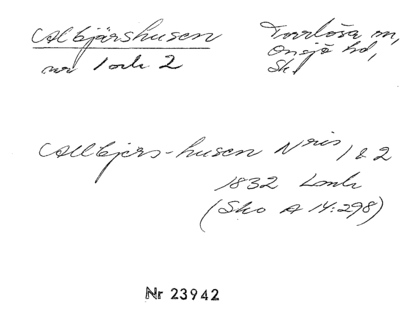 Allbjärshusen
nr 1 och 2
Torrlösa sn,
Onsjö hd,
Sk.
Allbjers-husen Nris 1 & 2
1832 Lantm
(Sko A 14:298)
Nr 23942